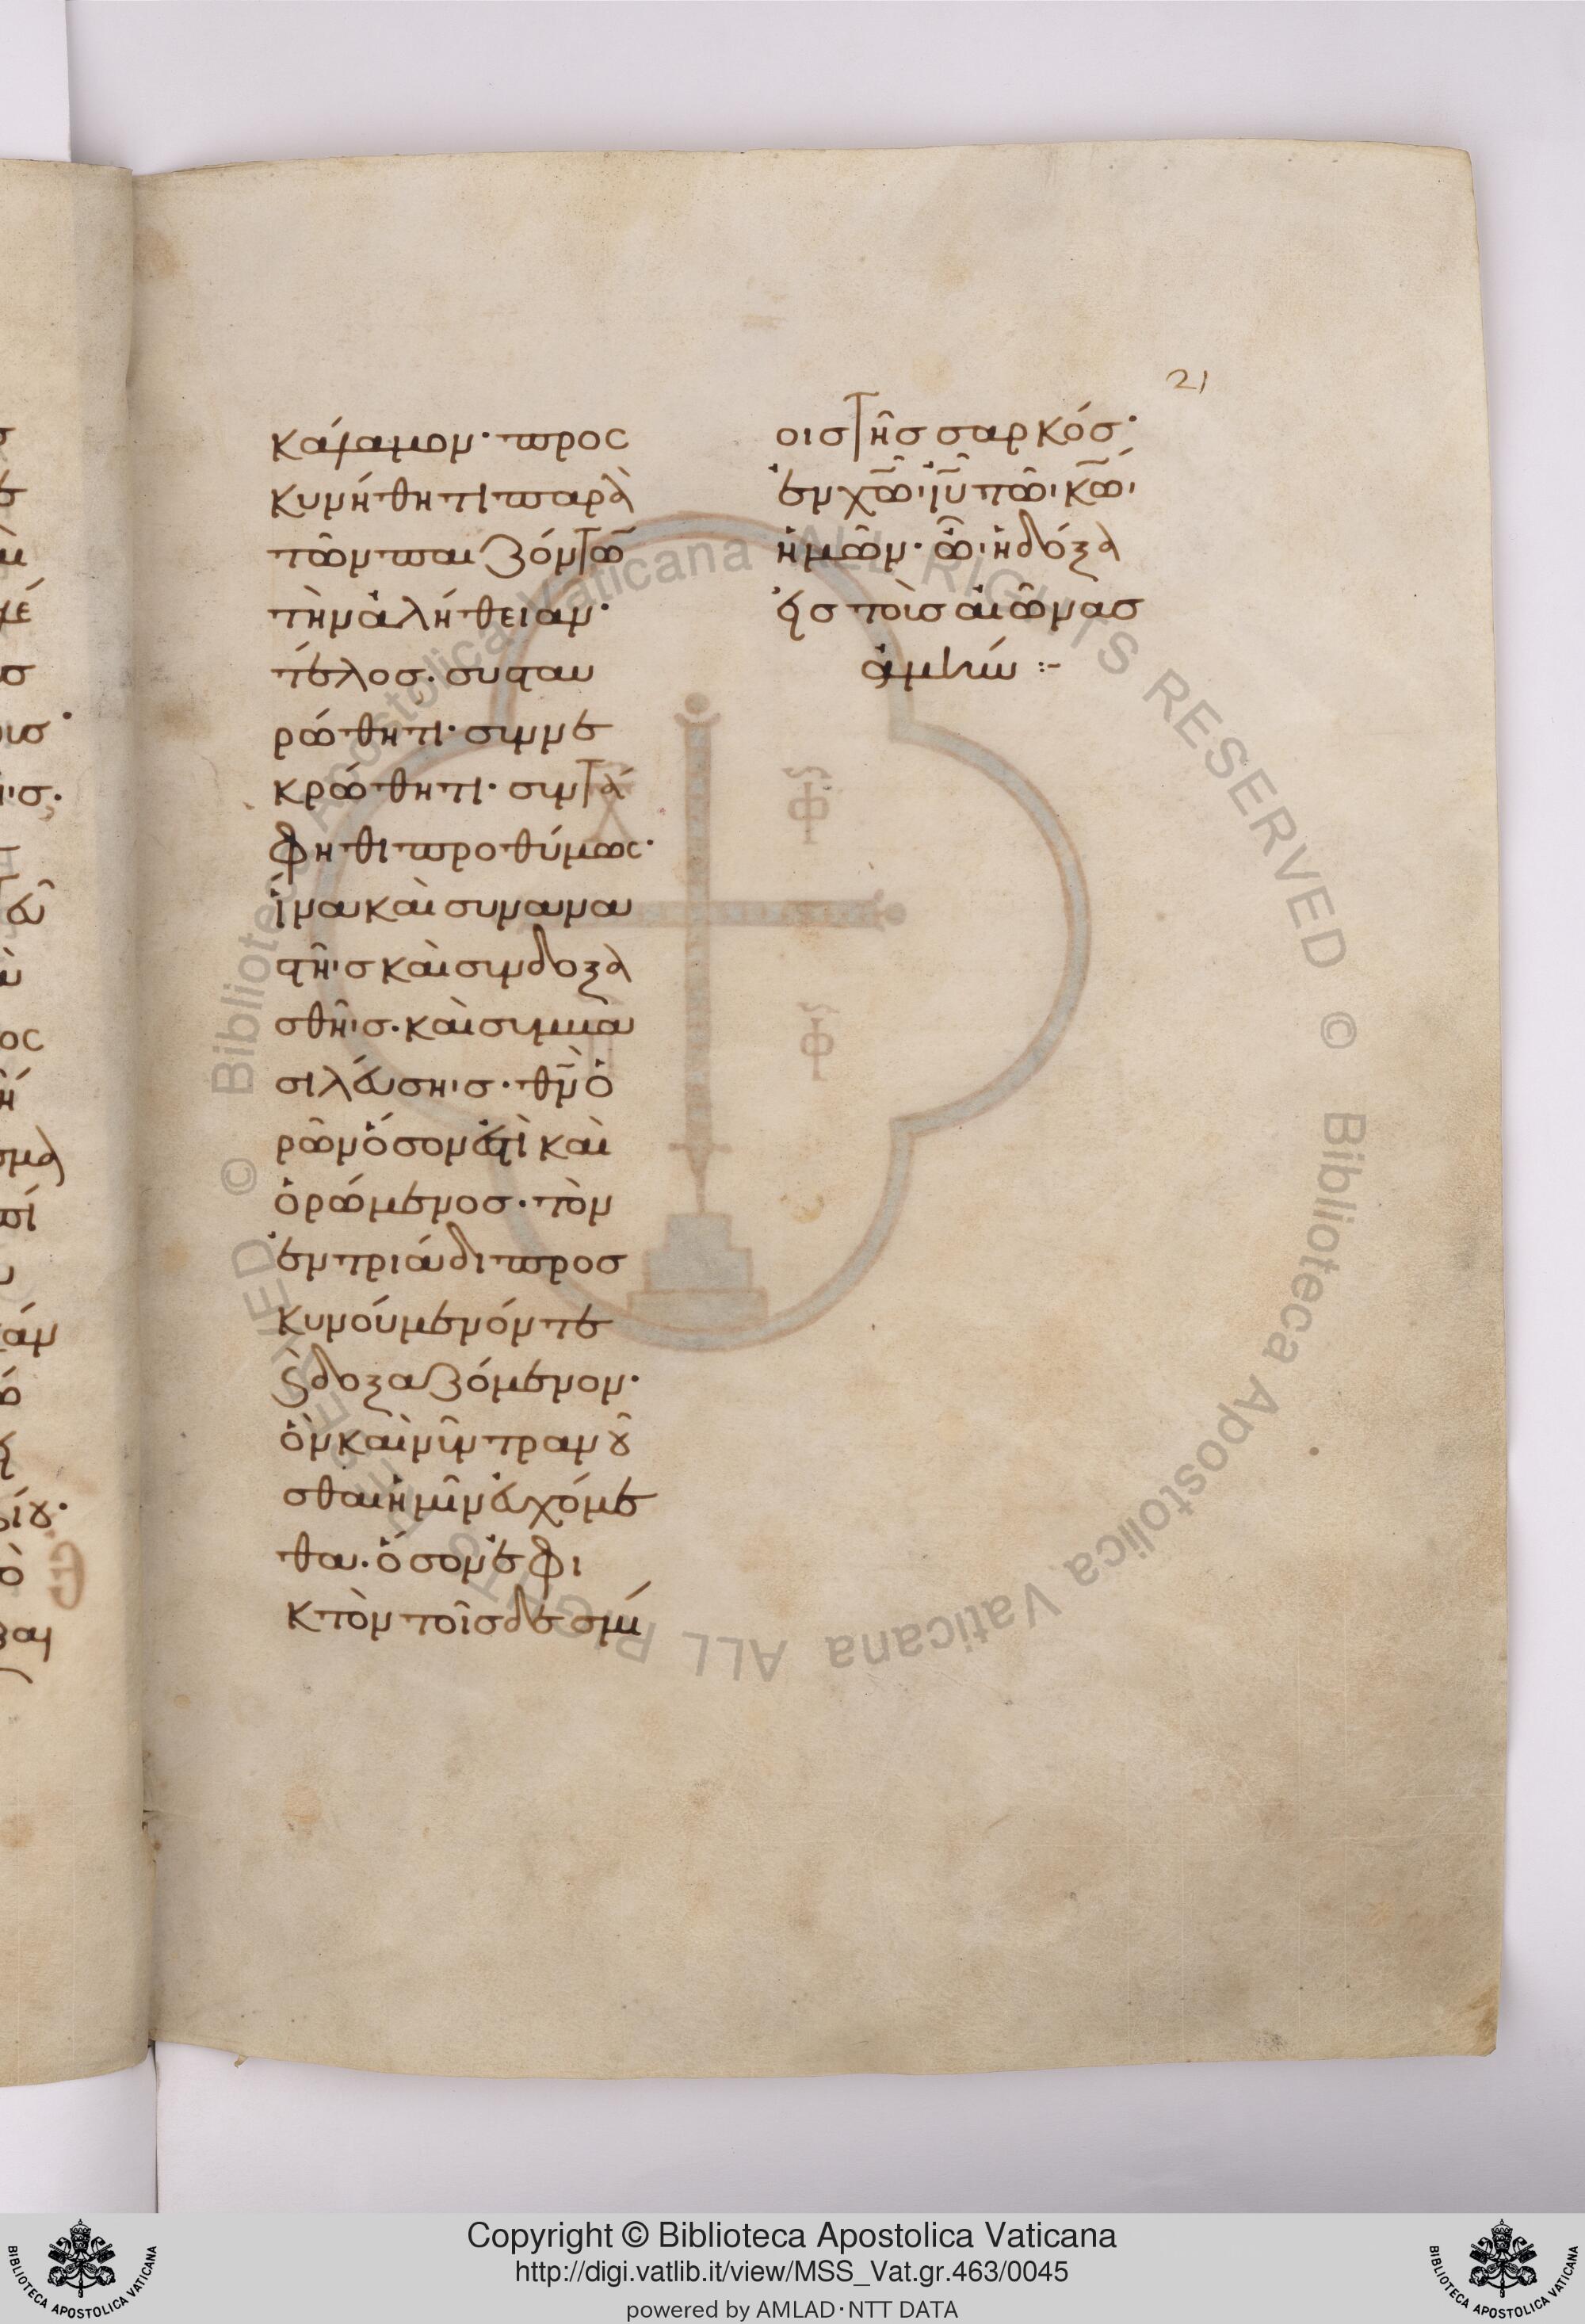 21
κάλαμον· προσ
κυνήθητι παρὰ
τῶν παιζόντω̅
τὴν ἀλήθειαν·
τέλοσ. συσταυ
ρώθητι· συννε
κρώθητι· συντά
φηθι προθύμως·
ἵνα καὶ συνανα
στῆισ καὶ συνδοξα
σθῆισ· καὶ συμβα
σιλεύσηισ· θ̅ν̅ ὁ
ρῶν ὅσον ἐστὶ καὶ
ὁρώμενοσ· τὸν
ἐν τριάδι προσ
κυνούμενόν τε
ϗ δοξαζόμενον·
ὃν καὶ νῦν τρανȣ͂
σθαι ἡμῖν εὐχόμε
θα· ὅσον ἐφι
κτὸν τοῖσ δεσμί
οισ τῆσ σαρκόσ·
ἐν χ̅ω̅ ι̅υ̅ τῶ κ̅ω̅
ἡμῶν· ὧι ἡ δόξα
εἰσ τοὺσ αἰῶνασ
ἀμήν :-
© Biblioteca Apostolica Vaticana ALL RIGHTS RESERVED © Biblioteca Apostolica Vaticana ALL RIGHTS RESERVED
BIBLIOTECA APOSTOLICA VATICANA
Copyright © Biblioteca Apostolica Vaticana
http://digi.vatlib.it/view/MSS_Vat.gr.463/0045
powered by AMLAD·NTT DATA
BIBLIOTECA APOSTOLICA VATICANA